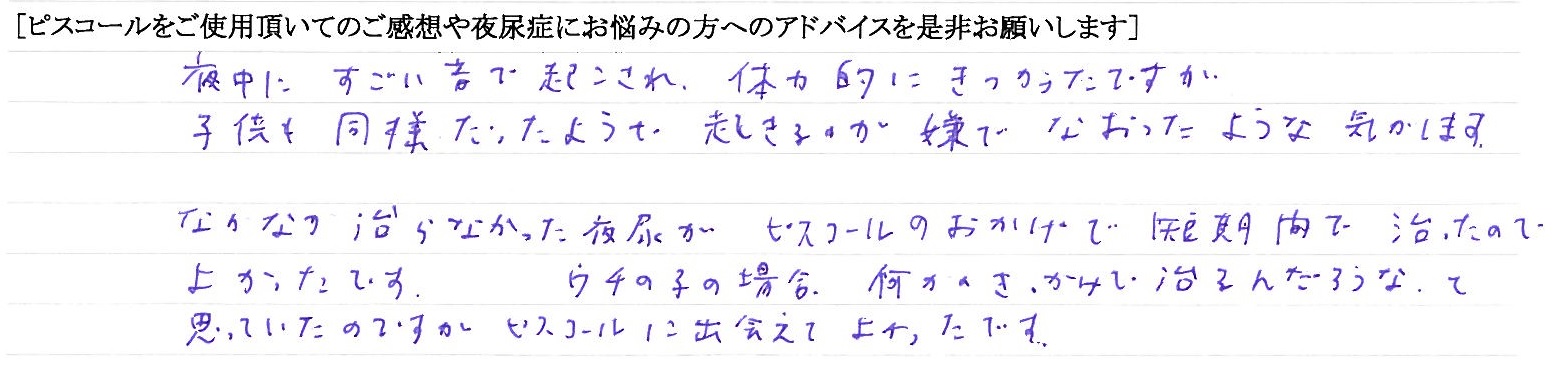 [ピスコールをご使用頂いてのご感想や夜尿症にお悩みの方へのアドバイスを是非お願いします]
夜中に すごい音で起こされ、体力的にきつかったですが
子供も同様だったようで 起きるのが嫌で なおったような気がします。
なかなか治らなかった夜尿が ピスコールのおかげで 短期間で 治ったので
よかったです。 ウチの子の場合、何かのきっかけで治るんだろうな、と
思っていたのですが ピスコールに出会えてよかったです。